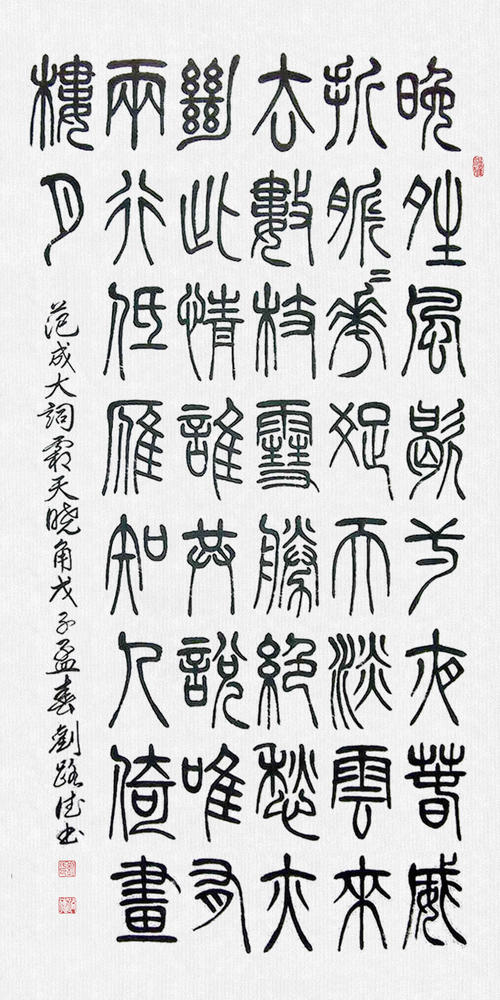 晚夝風歇一夜萅威
折脈〻華疏天淡雲來
去數枝雪勝絕愁亦
絕此情誰共說唯有
兩行低雁知人倚畫
樓月
范成大詞霜天晓角戊子孟春劉路书